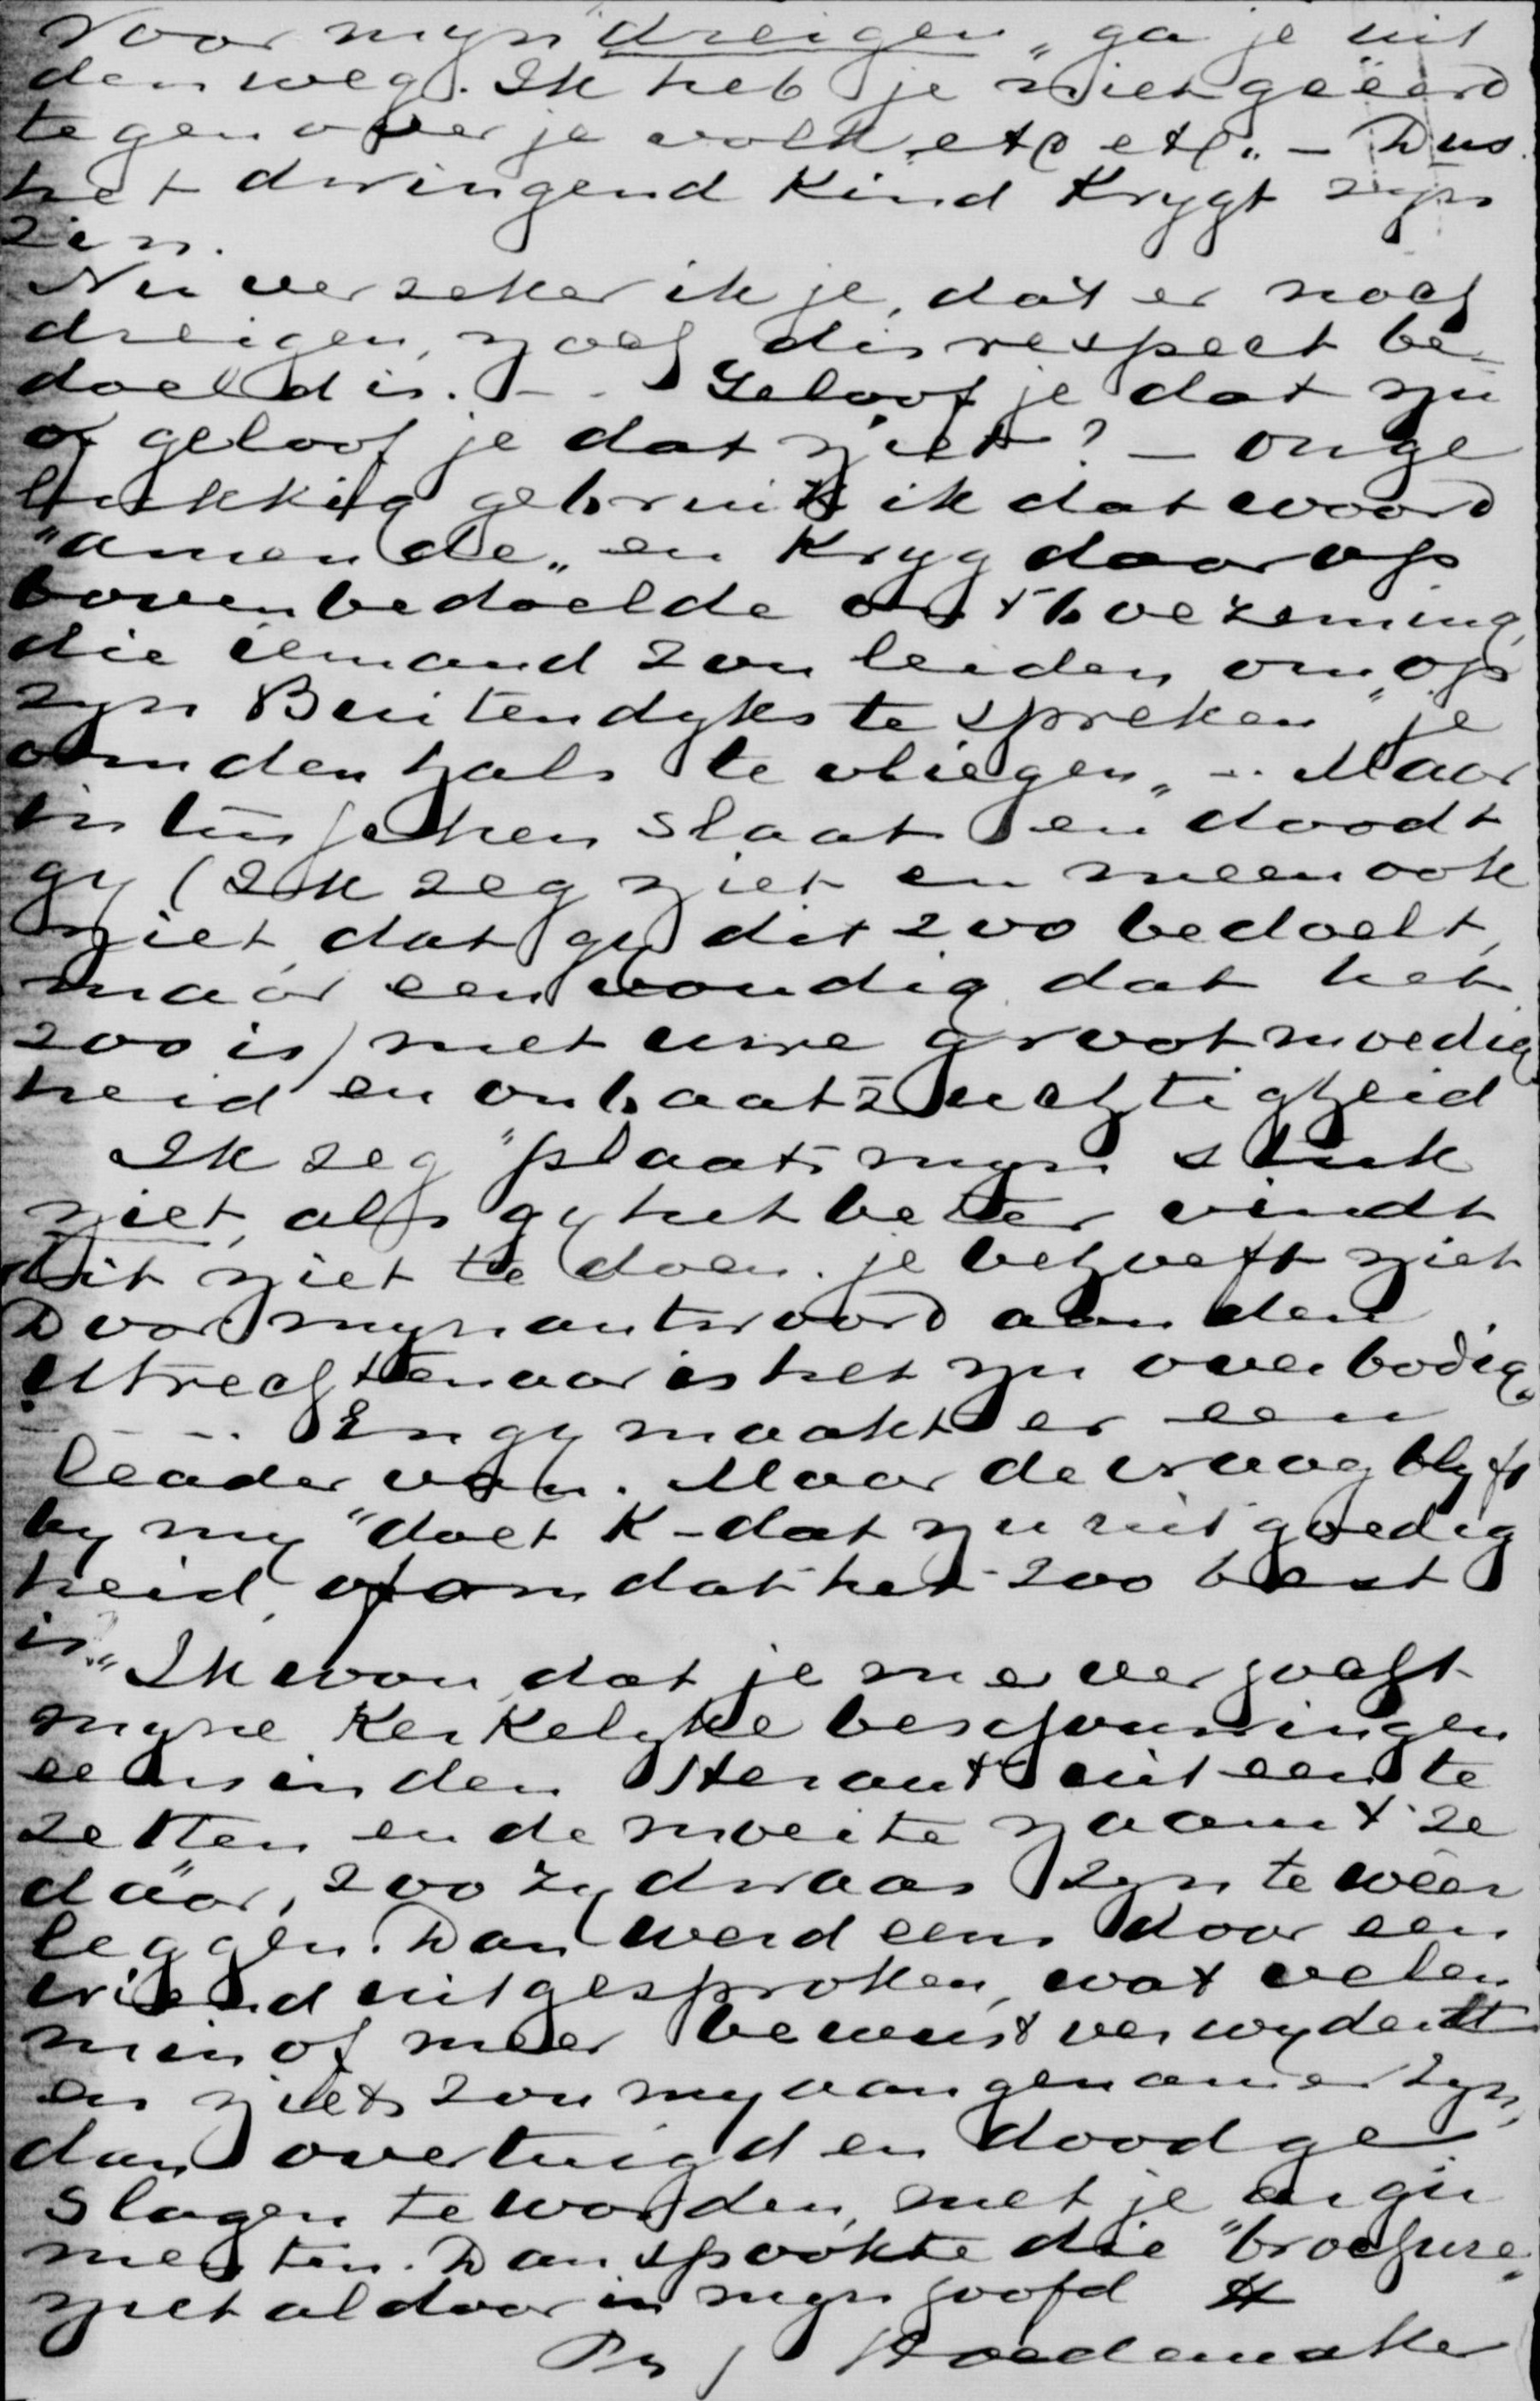 Voor myn dreigen „ga je uit
den weg. Ik heb je niet geëerd
tegenover je volk, etc etc." – Dus
het dwingend Kind Krygt zyn
zin.
Nu verzeker ik je, dat er noch
dreigen, noch disrespect be-
doeld is. – . Geloof je dat nu
of geloof je dat niet? – onge
lukkig gebruik ik dat woord
"amende„ en Kryg daarop
bovenbedoelde ontboezeming,
die iemand zou leiden om op
zyn Buitendyks te spreken "je
om den hals te vliegen„ -. Maar
tusschen slaat en doodt
gy (Ik zeg niet en meen ook
niet, dat gy dit zoo bedoelt,
maar eenvoudig dat het
zoo is) met uwe grootmoedig
heid en onbaatzuchtigheid
Ik zeg "plaats myn stuk
niet, als gy het beter vindt
dit niet te doen. je behoeft niet
Door myn antwoord aan den
Utrechtenaar is het nu overbodig„
– -. En gy maakt er een
leader van. Maar de vraag blyft
by my "doet K – dat nu uit goedig
heid, of omdat het zoo best
is?„ Ik wou dat je me vergoeft
myne Kerkelyke beschouwingen
eens in den Heraut uiteen te
zetten en de moeite naamt ze
däar, zoo zy dwaas zyn te wêer
leggen. Dan werd eens door een
vriend uitgesproken, wat velen
min of meer bewust verwydert
en niets zou my aangenamer zyn,
dan overtuigd en dood ge
slagen te worden, met je argu
menten. Dan spookte die "brochure„
niet al door in myn hoofd
Ph J Hoedemaker